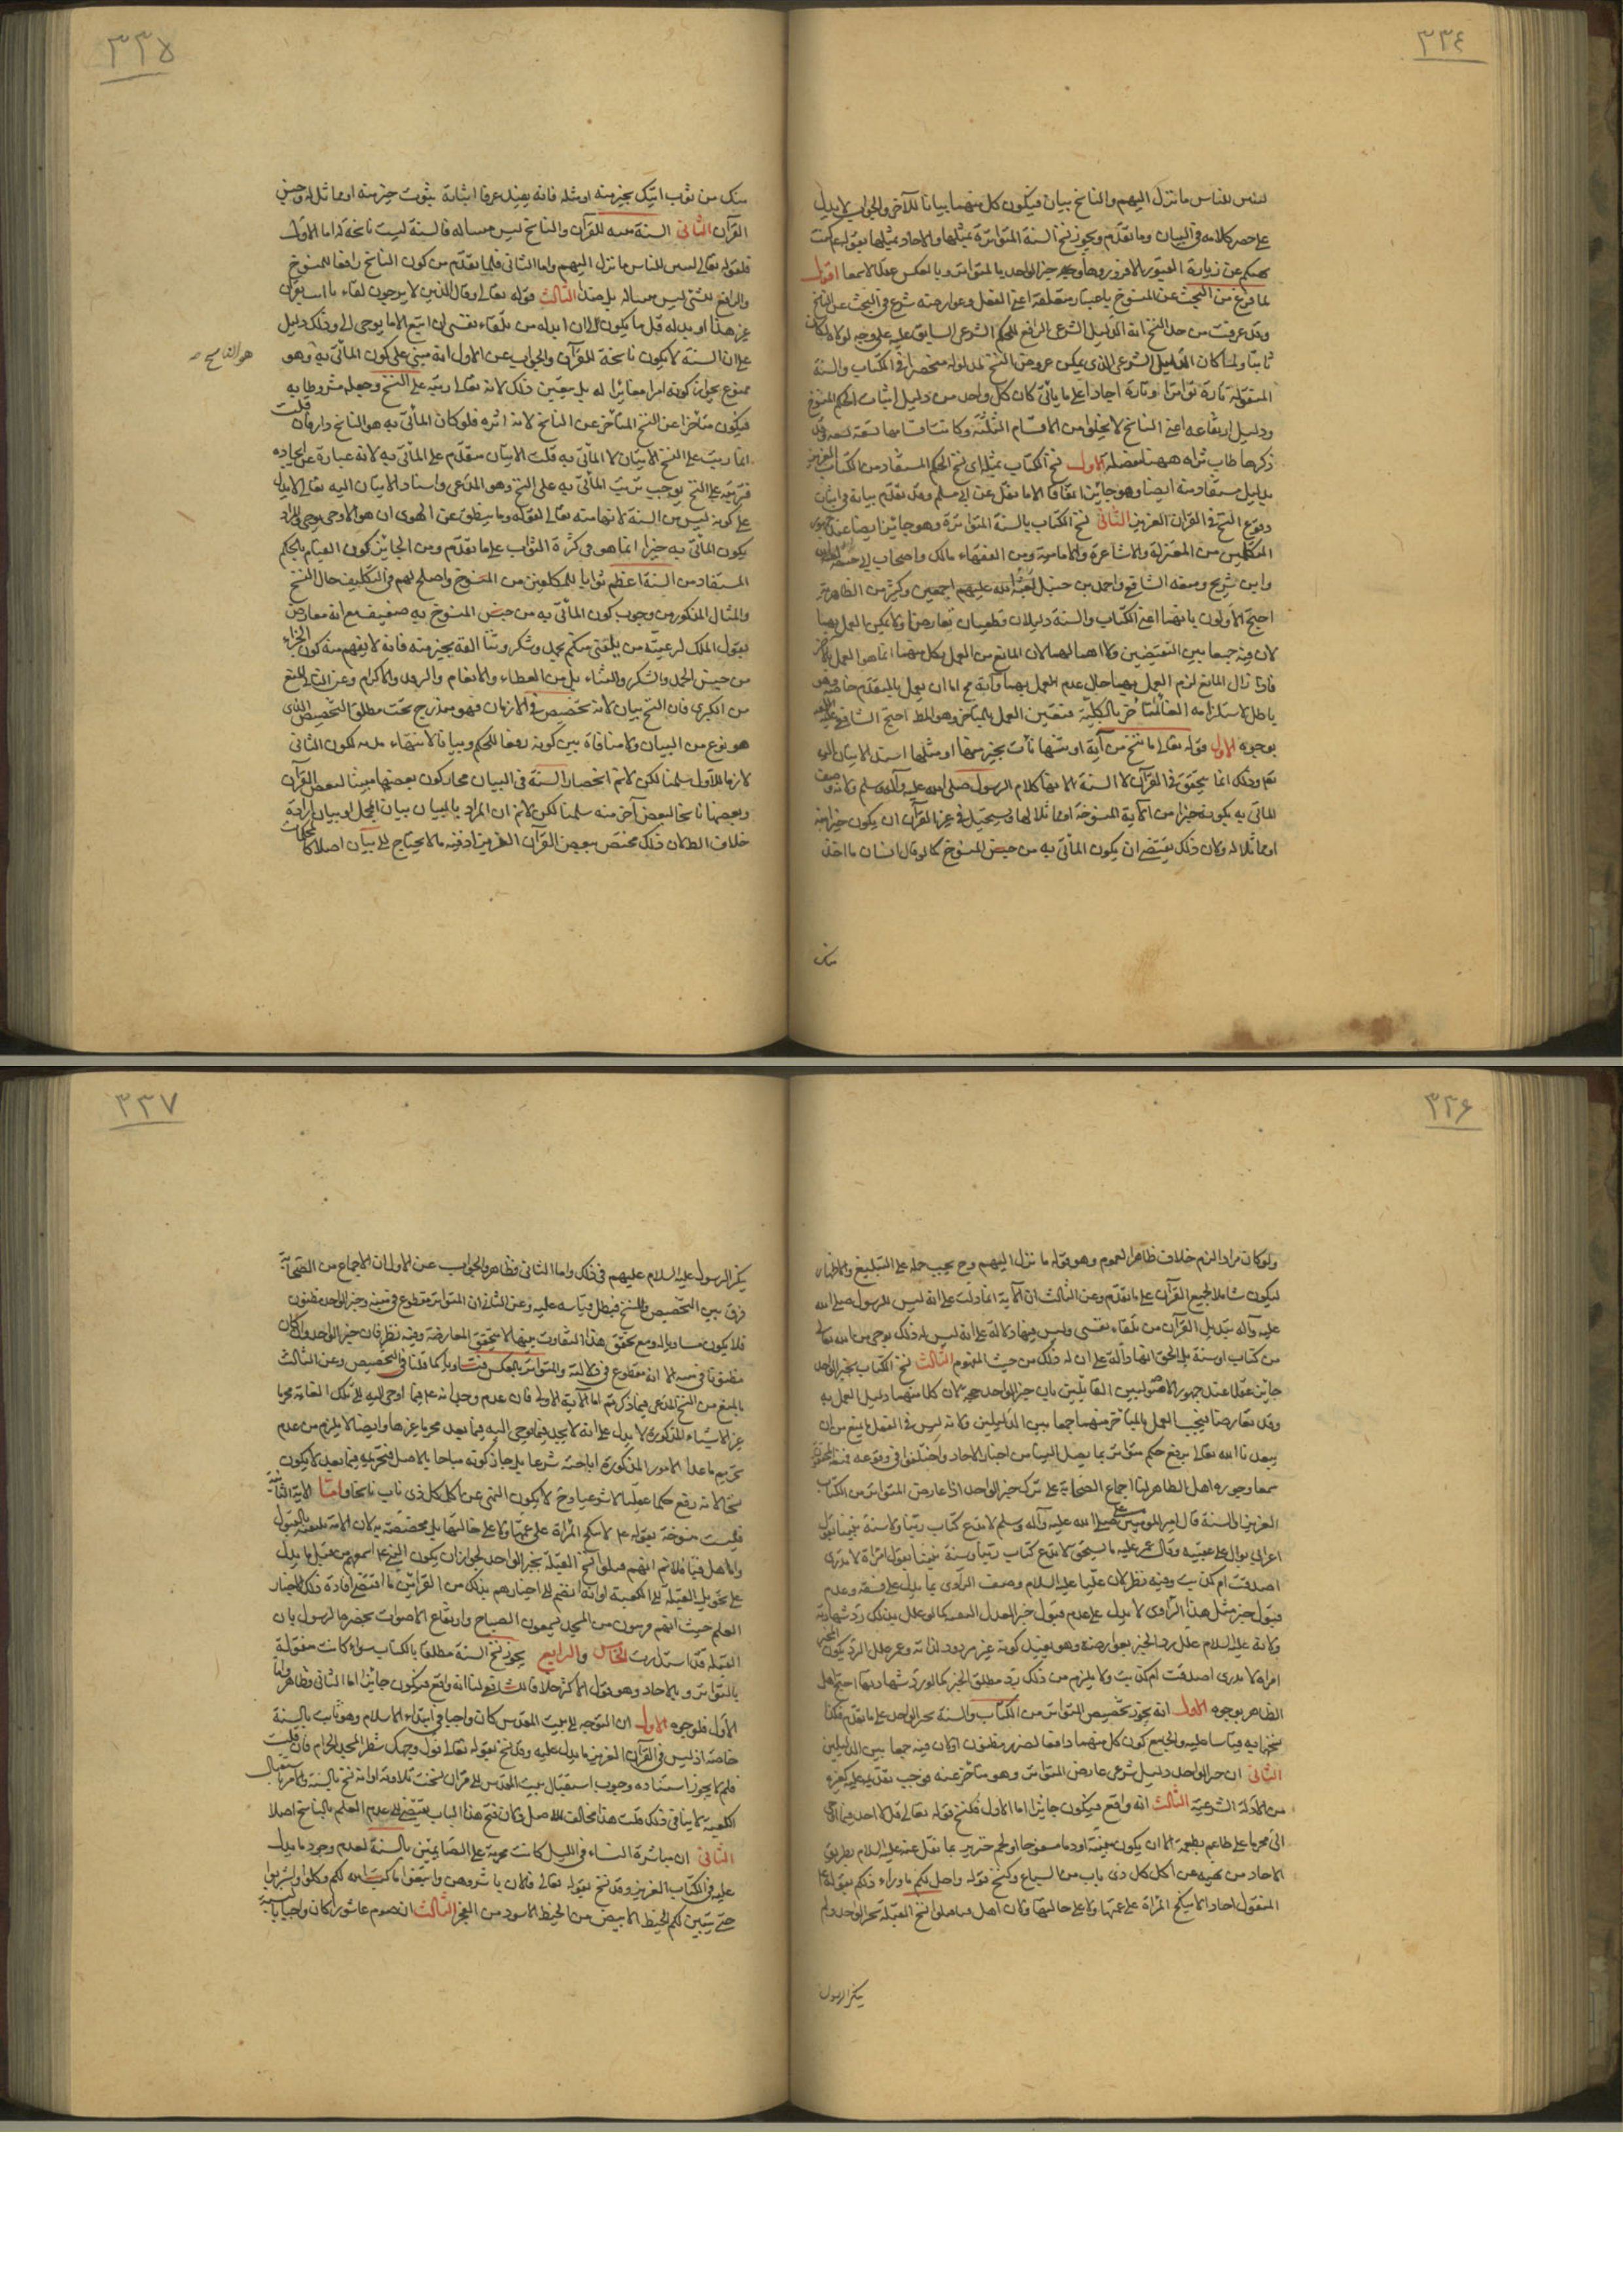 ٣٣٤
لتبين للناس ما نزل اليهم والناسخ بيان فيكون كل منهما بيانا للآخر والجواب لا يدل
على حصر كلامه في البيان وما تقدم ويجوز نسخ السنة المتواترة بمثلها والاحاد بمثلها بقوله كنت
نهيتكم عن زيارة القبور الا فزوروها وخبر الواحد بالمتواتر وبالعكس عقلا لا سمعا اقول
لما فرغ من البحث عن المنسوخ باعتبار متعلقه اعني الفعل وعوارضه شرع في البحث عن الناسخ
وقد عرفت من حد النسخ انه الدليل الشرعي الرافع للحكم الشرعي السابق عليه على وجه لولاه لكان
ثابتا ولما كان الدليل الشرعي الذي يمكن عروض النسخ لمدلوله منحصرا في الكتاب والسنة
المنقولة تارة تواترا وتارة احادا على ما يأتي كان كل واحد من دليل اثبات الحكم المنسوخ
ودليل ارتفاعه اعني الناسخ لا يخلو من الاقسام الثلثة وكانت اقسامها تسعة
ذكرها طاب ثراه ههنا مفصلة الاول نسخ الكتاب بمثله اي نسخ الحكم المستفاد من الكتاب العزيز
بدليل مستفاد منه ايضا وهو جائز اتفاقا الا ما نقل عن ابي مسلم وقد تقدم بيانه في اثبات
وقوع النسخ في القرآن العزيز الثاني نسخ الكتاب بالسنة المتواترة وهو جائز ايضا عند جمهور
المتكلمين من المعتزلة والاشاعرة والامامية ومن الفقهاء مالك واصحاب ابي حنيفة
وابن شريح ومنعه الشافعي واحمد بن حنبل اجمعين وكثير من الظاهرية
احتج الاولون بانهما اعني الكتاب والسنة دليلان قطعيان تعارضا ولا يمكن العمل بهما
لان فيه جمعا بين النقيضين ولا اهمالهما لان المانع من العمل بكل منهما انما هو العمل بالاخر
فاذا زال المانع لزم العمل بهما حال عدم العمل بهما وانه مح اما ان يعمل بالمتقدم خاصة وهو
باطل لاستلزامه الغاء المتأخر بالكلية فتعين العمل بالمتأخر وهو المط احتج الشافعي
بوجوه الاول قوله تعالى ما ننسخ من آية او ننسها نأت بخير منها او مثلها اسند الاتيان اليه
تع وذلك انما يتحقق في القرآن لا السنة لانها كلام الرسول صلى الله عليه وآله وسلم ولانه وصف
المأتي به بكونه خيرا من الآية المنسوخة او مماثلا لها ويستحيل في غير القرآن ان يكون خيرا منه
او مماثلا له ولان ذلك يقتضي ان يكون المأتي به من جنس المنسوخ كما لو قال انسان ما اخذ
منك
٣٣٥
منك من ثوب اتيك بخير منه او مثله فانه يفيد عرفا اتيانه بثوب خير منه او مماثل له وجنس
القرآن الثاني السنة مبينة للقرآن والناسخ ليس مبينا له فالسنة ليست ناسخة له اما الاول
فلقوله تعالى لتبين للناس ما نزل اليهم واما الثاني فلما تقدم من كون الناسخ رافعا للمنسوخ
والرافع لشئ ليس مبينا له بل ضد له الثالث قوله تعالى وقال الذين لا يرجون لقاءنا ائت بقرآن
غير هذا او بدله قل ما يكون لي ان ابدله من تلقاء نفسي ان اتبع الا ما يوحى الي وذلك دليل
على ان السنة لا يكون ناسخة للقرآن والجواب عن الاول انه مبني على كون المأتي به وهو
هو الناسخ
ممنوع بجواز كونه امرا مغايرا له بل يتعين ذلك لانه تعالى رتبه على النسخ وجعله مشروطا به
فيكون متأخرا عن النسخ المتأخر عن الناسخ لانه اثره فلو كان المأتي به هو الناسخ دار فان قلت
انما رتب على النسخ الاتيان لا المأتي به قلت الاتيان متقدم على المأتي به لانه عبارة عن ايجاده
فترتبه على النسخ يوجب ترتب المأتي به على النسخ وهو المدعى واسناد الاتيان اليه تعالى لا يدل
على كونه ليس من السنة لانها منه تعالى لقوله وما ينطق عن الهوى ان هو الا وحي يوحى والمراد
بكون المأتي به خيرا انما هو في كثرة الثواب على ما تقدم ومن الجائز كون القيام بالحكم
المستفاد من السنة اعظم ثوابا للمكلفين من المنسوخ واصلح لهم في التكليف حال النسخ
والمثال المذكور من وجوب كون المأتي به من جنس المنسوخ به ضعيف مع انه معارض
بقول الملك لرعيته من يلقني منكم بحمد وشكر وثنا القه بخير منه فانه لا يفهم منه كون الجزاء
من جنس الحمد والشكر والثناء بل من العطاء والانعام والرفد والاكرام وعن الثاني المنع
من الكبرى فان النسخ بيان لانه تخصيص في الازمان فهو مندرج تحت مطلق التخصيص الذي
هو نوع من البيان ولا منافاة بين كونه رفعا للحكم وبيانا لانتهاء مدته لكون الثاني
لازما للاول سلمنا لكن لانم انحصار السنة في البيان لجواز كون بعضها مبينا لبعض القرآن
وبعضها ناسخا لبعض آخر منه سلمنا لكن لانم ان المراد بالبيان بيان المجمل او بيان ارادة
خلاف الظ لان ذلك مختص ببعض القرآن العزيز اذ فيه ما لا يحتاج الى بيان اصلا كالمحكمات
٣٣۶
ولو كان مرادا لزم خلاف ظاهر العموم وهو قوله ما نزل اليهم وح يجب حمله على التبليغ والاظهار
ليكون شاملا لجميع القرآن على ما تقدم وعن الثالث ان الآية انما دلت على انه ليس للرسول صلى الله
عليه وآله تبديل القرآن من تلقاء نفسي وليس فيها دلالة على انه ليس له ذلك بوحي من الله تعالى
من كتاب او سنة بل الحق انها دالة على ان له ذلك من حيث المفهوم الثالث نسخ الكتاب بخبر الواحد
جائز عقلا عند جمهور الاصوليين القائلين بان خبر الواحد حجة لان كلا منهما دليل العمل به
وقد تعارضا فيجب العمل بالمتأخر منهما جمعا بين الدليلين ولانه ليس في العقل ما يمنع من ان
يتعبدنا الله تعالى برفع حكم متواتر بما يصل الينا من اخبار الاحاد واختلفوا في وقوعه فمنعه الجمهور
سمعا وجوزه اهل الظاهر لنا اجماع الصحابة على ترك خبر الواحد اذا عارض المتواتر من الكتاب
العزيز او السنة قال امير المؤمنين على صلى الله عليه وآله وسلم لا ندع كتاب ربنا ولا سنة نبينا بقول
اعرابي بوال على عقبيه وقال عمر عليه ما يستحق لا ندع كتاب ربنا وسنة نبينا بقول امرأة لا ندري
اصدقت ام كذبت وفيه نظر لان عليا عليه السلام وصف الراوي بما يدل على فسقه وعدم
قبول خبر مثل هذا الراوي لا يدل على عدم قبول خبر العدل
ولانه عليه السلام علل رد الخبر بعوارضه وهو يفيد كونه غير مردود لذاته وعمر علل الرد بكون المخبر
امرأة لا ندري اصدقت ام كذبت ولا يلزم من ذلك رد مطلق الخبر كما لو رد شهادتها احتج اهل
الظاهر بوجوه الاول انه يجوز تخصيص المتواتر من الكتاب والسنة بخبر الواحد على ما تقدم فكذا
نسخهما به قياسا عليه والجامع كون كل منهما دافعا لضرر مظنون او لان فيه جمعا بين الدليلين
الثاني ان خبر الواحد دليل شرعي عارض المتواتر وهو متأخر عنه فوجب تقديمه عليه كغيره
من الادلة الشرعية الثالث انه واقع فيكون جائزا اما الاول فلنسخ قوله تعالى قل لا اجد فيما اوحي
الي محرما على طاعم يطعمه الا ان يكون ميتة او دما مسفوحا او لحم خنزير بما نقل عنه عليه السلام بطريق
الاحاد من نهيه عن اكل كل ذي ناب من السباع وكنسخ قوله واحل لكم ما وراء ذلكم بقوله ع
المنقول احادا لا ينكح المرأة على عمتها ولا على خالتها ولان اهل قبا قبلوا نسخ القبلة بخبر الواحد ولم
ينكر الرسول
٣٣٧
ينكر الرسول عليه السلام عليهم في ذلك واما الثاني فظاهر والجواب عن الاول ان الاجماع من الصحابة
فرق بين التخصيص والنسخ فبطل قياسه عليه وعن الثاني ان المتواتر مقطوع في متنه وخبر الواحد مظنون
فلا يكون مساويا له ومع تحقق هذا التفاوت بينهما لا يتحقق المعارضة وفيه نظر فان خبر الواحد وان كان
مظنونا في متنه الا انه مقطوع في دلالته والمتواتر بالعكس فتساويا كما قلنا في التخصيص وعن الثالث
بالمنع من النسخ المدعى فيما ذكرتم اما الآية الاولى فلان عدم وجدانه ع فيما اوحي اليه الى تلك الغاية محرما
غير الاشياء المذكورة لا يدل على انه لا يجد فيما يوحى اليه فيما بعد محرما غيرها وايضا لا يلزم من عدم
تحريم ما عدا الامور المذكورة اباحته شرعا بل جاز كونه مباحا بالاصل فتحريمه فيما بعد لا يكون
نسخا لانه رفع حكما عقليا لا شرعيا وح لا يكون النهي عن اكل كل ذي ناب ناسخا واما الآية الثانية
فليست منسوخة بقوله ع لا ينكح المرأة على عمتها ولا على خالتها بل مخصصة به لان الامة تلقته بالقبول
واما اهل قبا فلانم انهم قبلوا نسخ القبلة بخبر الواحد لجواز ان يكون النبي ع اسمعهم من قبل ما يدل
على تحويل القبلة الى الكعبة او انه انضم الى اخبارهم بذلك من القرائن ما اقتضى افادة ذلك الاخبار
العلم حيث انهم قريبون من المسجد يسمعون الصياح وارتفاع الاصوات بحضرة الرسول بان
القبلة قد استدارت الخامس والرابع يجوز نسخ السنة مطلقا بالكتاب سواء كانت منقولة
بالتواتر وبالاحاد وهو قول الاكثر خلافا للشافعي لنا انه واقع فيكون جائزا اما الثاني فظاهر واما
الاول فلوجوه الاول ان التوجه الى بيت المقدس كان واجبا في ابتداء الاسلام وهو ثابت بالسنة
خاصة اذ ليس في القرآن العزيز ما يدل عليه وقد نسخ بقوله تعالى فول وجهك شطر المسجد الحرام فان قلت
فلم لا يجوز استناده وجوب استقبال بيت المقدس الى قرآن نسخت تلاوته او انه نسخ بالسنة والامر باستقبال
الكعبة لا ينافي ذلك قلت هذا مخالف للاصل ولان فتح هذا الباب يقتضي الى عدم العلم بالناسخ اصلا
الثاني ان مباشرة النساء في الليل كانت محرمة على الصائمين بالسنة لعدم وجود ما يدل
عليه في الكتاب العزيز وقد نسخ بقوله تعالى فالان باشروهن وابتغوا ما كتب الله لكم وكلوا واشربوا
حتى يتبين لكم الخيط الابيض من الخيط الاسود من الفجر الثالث ان صوم عاشورا كان واجبا بالسنة